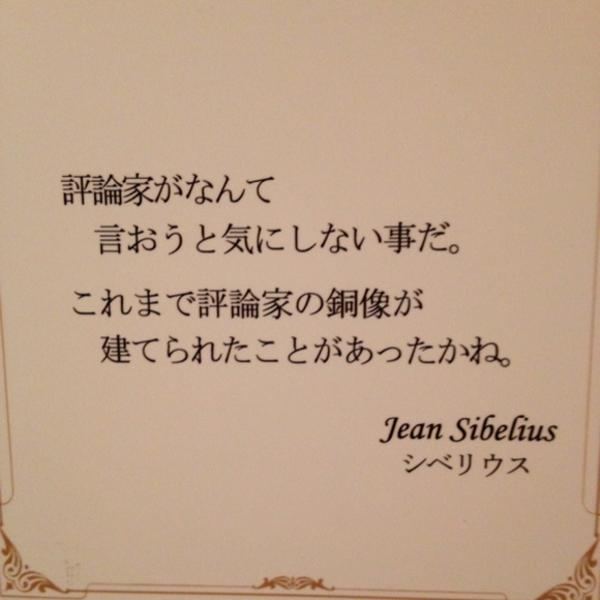 評論家がなんて
言おうと気にしない事だ。
これまで評論家の銅像が
建てられたことがあったかね。
Jean Sibelius
シベリウス